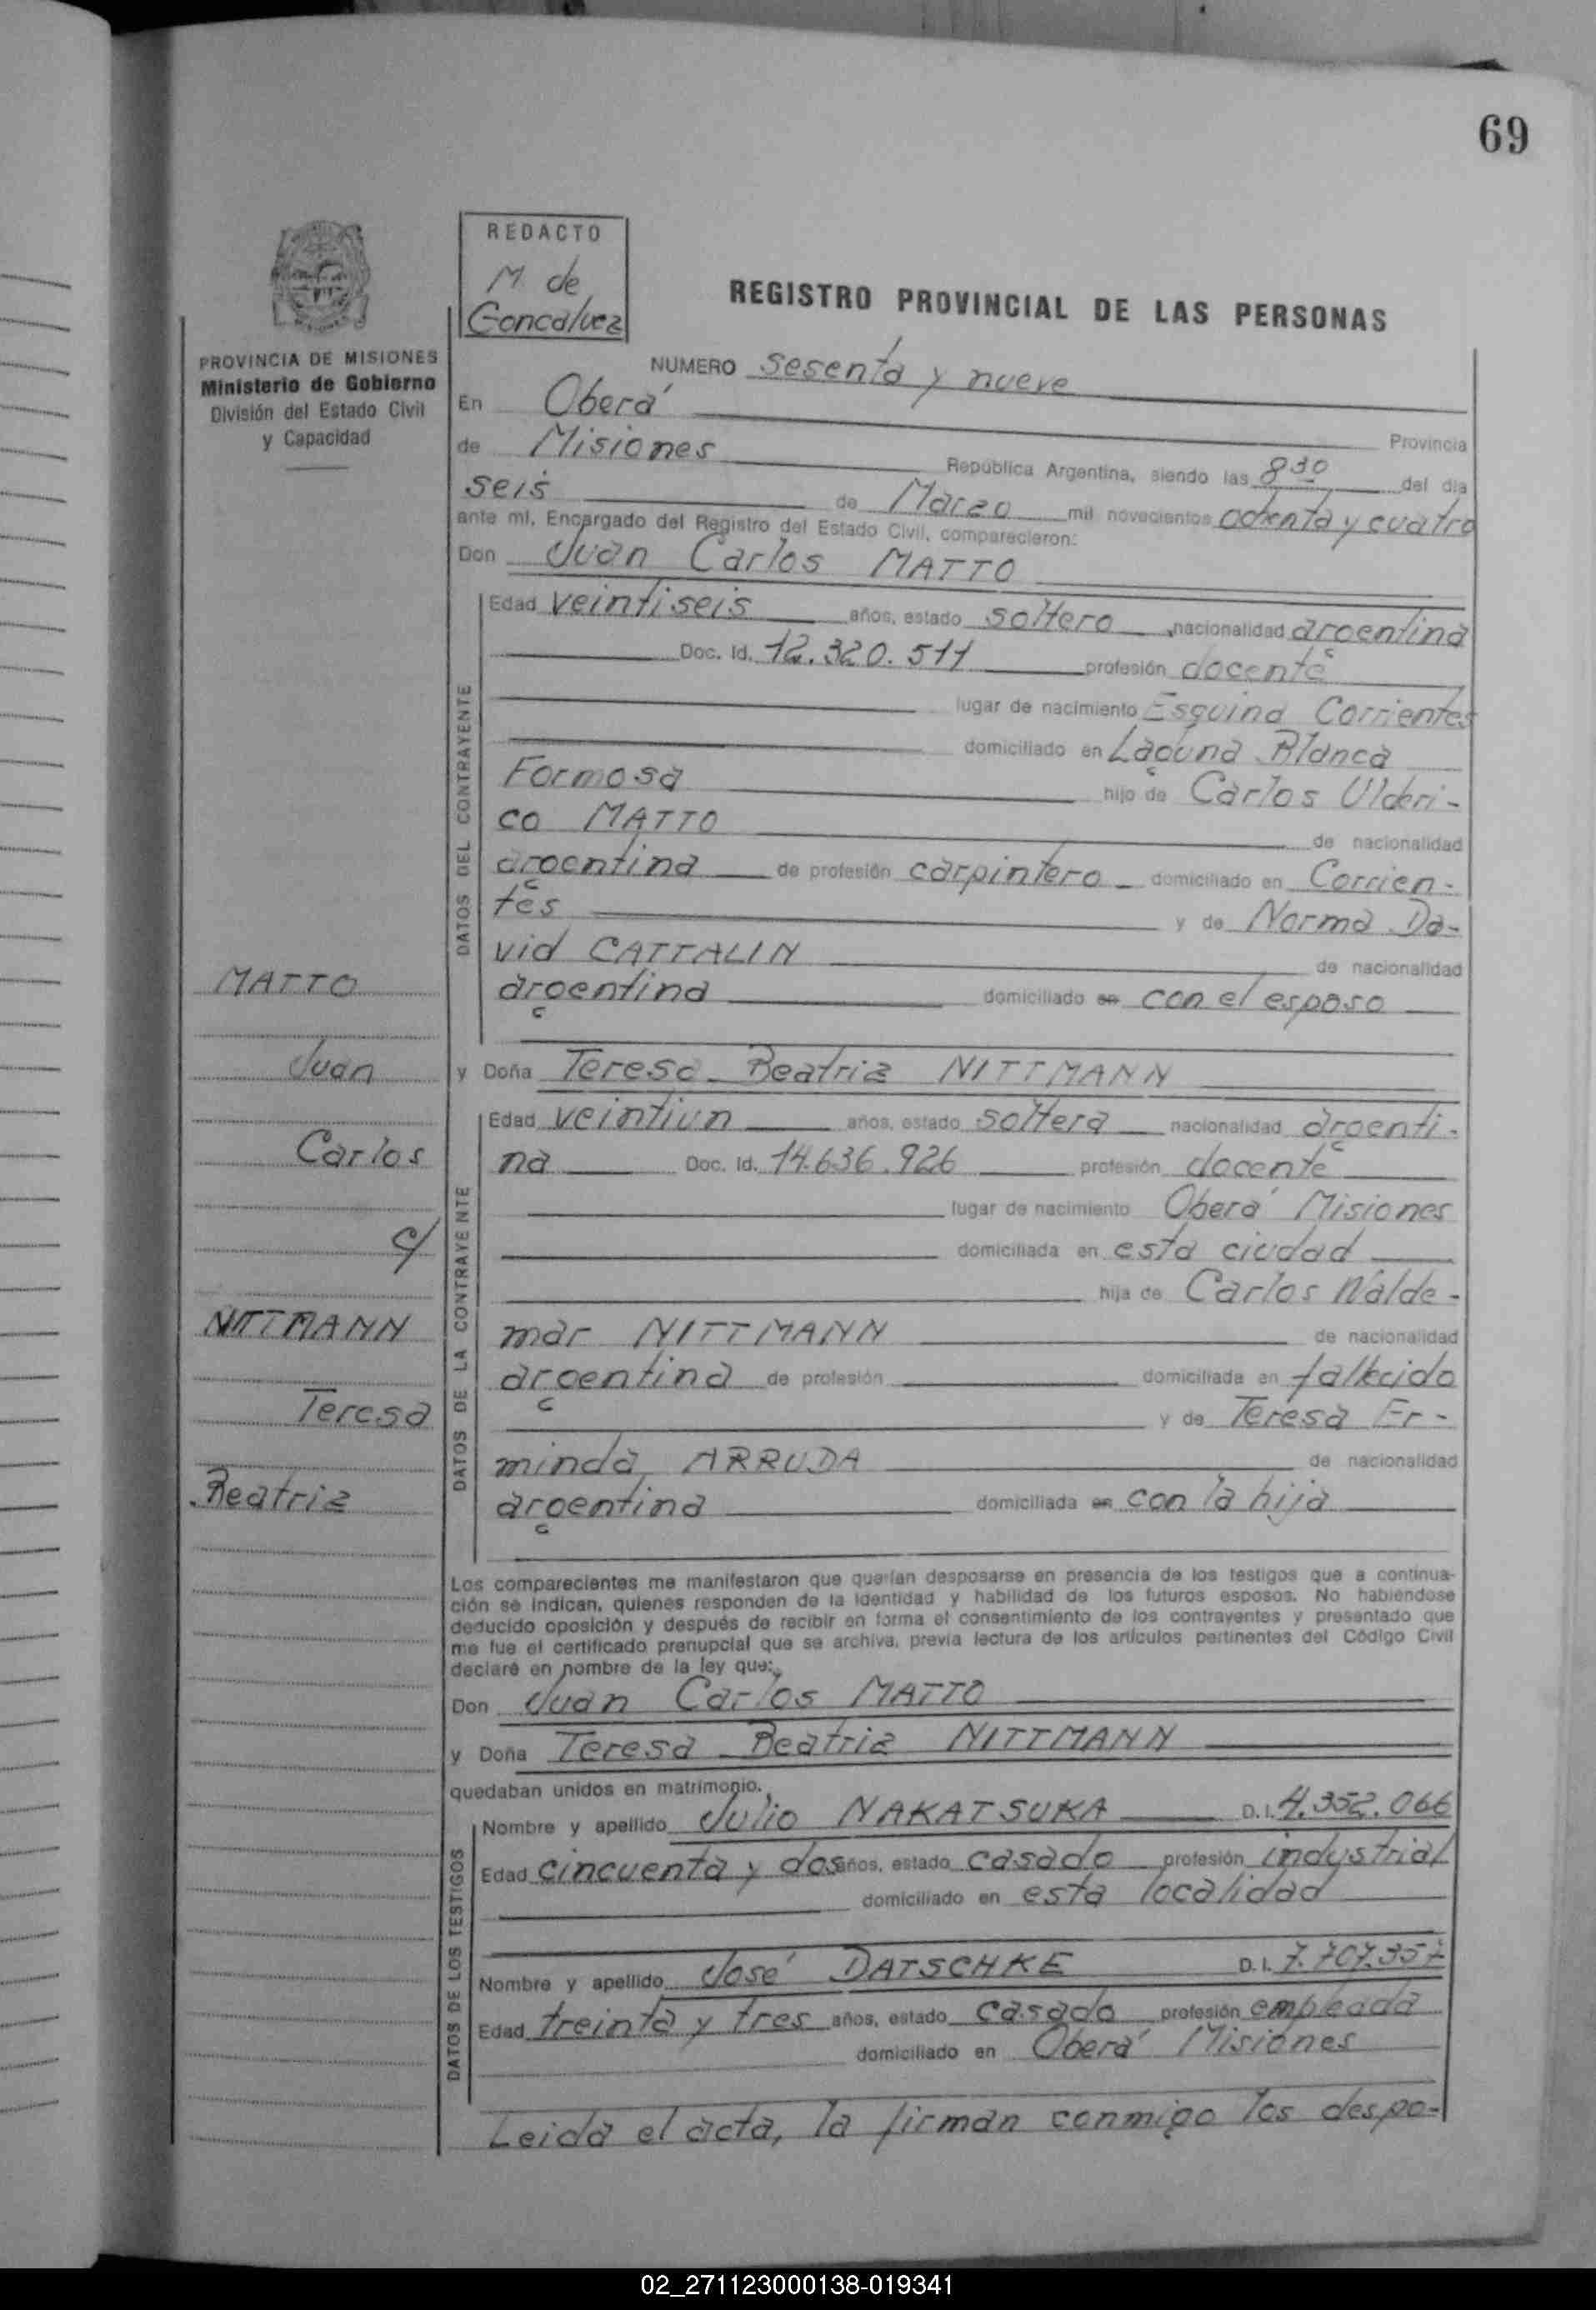 69
REDACTO
M. de
Goncalvez
REGISTRO PROVINCIAL DE LAS PERSONAS
PROVINCIA DE MISIONES
Ministerio de Gobierno
División del Estado Civil
y Capacidad
NUMERO sesenta y nueve
En Oberá Provincia
de Misiones República Argentina, siendo las 8 30 del día
seis de Marzo mil novecientos ochenta y cuatro
ante mí, Encargado del Registro del Estado Civil, comparecieron:
Don Juan Carlos MATTO
DATOS DEL CONTRAYENTE
Edad veintiseis años, estado soltero nacionalidad argentina
Doc. Id. 12.320.511 profesión docente
lugar de nacimiento Esquina Corrientes
domiciliado en Laguna Blanca
Formosa hijo de Carlos Ulderi-
co MATTO de nacionalidad
argentina de profesión carpintero domiciliado en Corrien-
tes y de Norma Da-
vid CATTALIN de nacionalidad
argentina domiciliado en con el esposo
MATTO
Juan
Carlos
c/
NITTMANN
Teresa
Beatriz
y Doña Teresa Beatriz NITTMANN
DATOS DE LA CONTRAYENTE
Edad veintiun años, estado soltera nacionalidad argenti-
na Doc. Id. 14.636.926 profesión docente
lugar de nacimiento Oberá Misiones
domiciliada en esta ciudad
hija de Carlos Walde-
mar NITTMANN de nacionalidad
argentina de profesión domiciliada en fallecido
y de Teresa Er-
minda ARRUDA de nacionalidad
argentina domiciliada en con la hija
Los comparecientes me manifestaron que querían desposarse en presencia de los testigos que a continua-
ción se indican, quienes responden de la identidad y habilidad de los futuros esposos. No habiéndose
deducido oposición y después de recibir en forma el consentimiento de los contrayentes y presentado que
me fue el certificado prenupcial que se archiva, previa lectura de los artículos pertinentes del Código Civil
declaré en nombre de la ley que:
Don Juan Carlos MATTO
y Doña Teresa Beatriz NITTMANN
quedaban unidos en matrimonio.
DATOS DE LOS TESTIGOS
Nombre y apellido Julio NAKATSUKA D.I. 4.352.066
Edad cincuenta y dos años, estado casado profesión industrial
domiciliado en esta localidad
Nombre y apellido José DATSCHKE D.I. 7.707.357
Edad treinta y tres años, estado casado profesión empleado
domiciliado en Oberá Misiones
Leida el acta, la firman conmigo los despo-
02_271123000138-019341